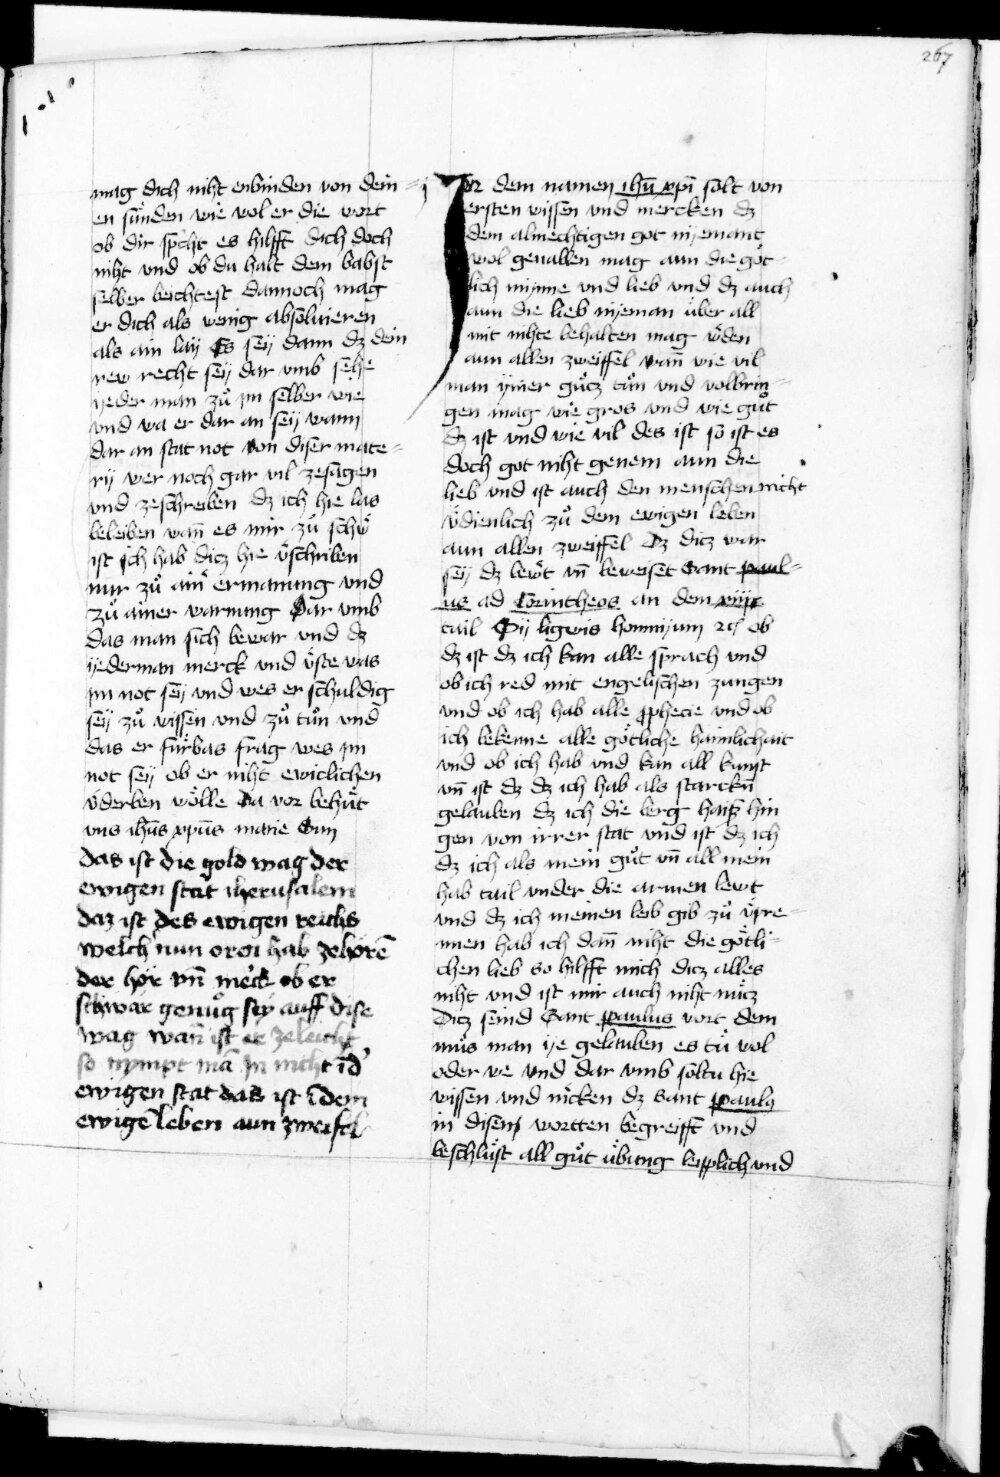 267
mag dich niht enbinden von dein=
en sünden wie vol er die wort
ob dir spͥcht es hilfft dich doch
niht vnd ob du halt dem babst
selber beichtest dannoch mag
er dich als wenig absoluieren
als ain laij Es seij dann dz dein
rew recht seij dar vmb sehe
ijeder man zů jm selber wie
vnd wa er dar an seij wann
dar an stat not von diser mate=
rij wer noch gar vil zesagen
vnd zeschreiben dz ich hie las
beleiben wan̄ es mir zů schwͦ
ist ich hab dicz hie v̈schriben
nur zů ain̄ ermanung vnd
zů ainer warnung Dar vmb
das man sich bewar vnd dz
ijederman merck vnd v̈ste was
jm not seij vnd wes er schuldig
seij zů wissen vnd zů tůn vnd
das er fürbas frag wes jm
not seij ob er niht ewiclichen
v̈derben wölle Da vor behüt
vns ih̄us xp̄us marie Sun
das ist die gold wag der
ewigen stat iherusalem
daz ist des ewigen reichs
welch nun oren hab zehorē
der hör vn̄ merck ob er
schwär genůg seÿ auff dise
wag wan̄ ist er zeleicht
so nympt mā jn nicht ī d'
ewigen stat das ist ī dem
ewigē leben aun zweifel
Jor dem namen ih̄u xp̄i solt von
ersten wissen vnd mercken dz
dem almechtigen got nijemant
wol geuallen mag aun die göt=
lich mijnne vnd lieb vnd dz auch
aun die lieb nijeman über all
mit nihte behalten mag v̈den
aun allen zweiffel wan̄ wie vil
man ÿmer gůcz tůn vnd volbrin=
gen mag wie gros vnd wie gůt
dz ist vnd wie vil des ist so ist es
doch got niht genem aun die
lieb vnd ist auch den menschen nicht
v̈dienlich zů dem ewigen leben
aun allen zweiffel Dz dicz war
seij dz bewͦt vn̄ beweiset Sant paul=
us ad Corintheos an dem xiij
tail Sij ligwis hominum ⁊c̄ ob
dz ist dz ich kan alle sprach vnd
ob ich red mit engelischen zungen
vnd ob ich hab alle ꝓphecie vnd ob
ich bekenne alle götliche haimlichait
vnd ob ich hab vnd kan all kunst
vn̄ ist dz dz ich hab als starckn̄
gelauben dz ich die berg haiß hin
gen von irrer stat vnd ist dz ich
dz ich als mein gůt vn̄ all mein
hab tail vnder die armen lewt
vnd dz ich meinen leib gib zů v̈pre=
nnen hab ich dan̄ niht die götli=
chen lieb so hilfft mich dicz alles
niht vnd ist mir auch niht nücz
Dicz seind Sant paulus wort dem
můs man ije gelauben es tů wol
oder we vnd dar vmb soltu hie
wissen vnd mͤcken dz sant paulꝯ
in disen wortten begreifft vnd
beschlüst all gůt übung leipplich vnd